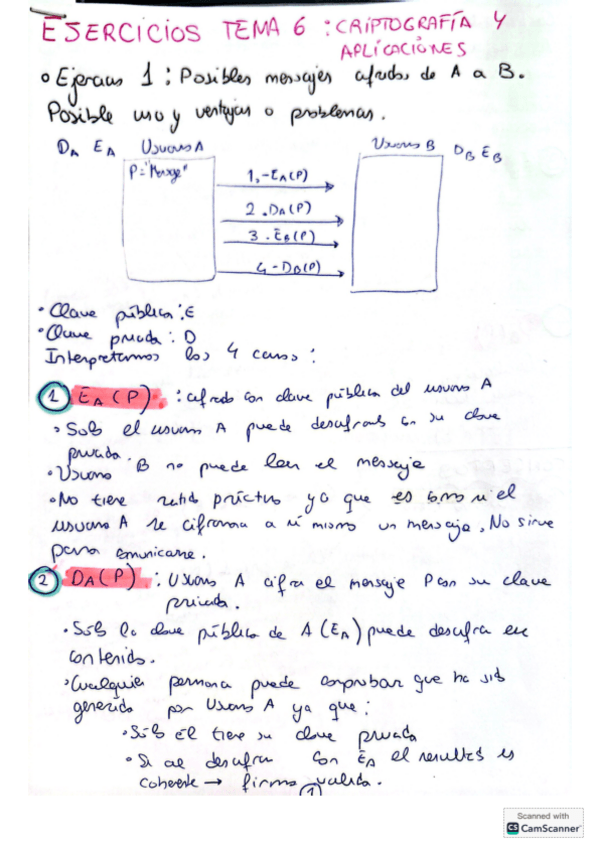 EJERCICIOS TEMA 6 : CRIPTOGRAFÍA Y
APLICACIONES
Ejercicio 1 : Posibles mensajes cifrados de A a B.
Posible uso y ventajas o problemas.
DA EA Usuario A
Usuario B DB EB
P="Message"
1.-EA(P)
2.DA(P)
3.-EB(P)
4.-DB(P)
• Clave pública : E
• Clave privada : D
Interpretamos los 4 casos :
1 EA(P) : cifrado con clave pública del usuario A
• Solo el usuario A puede descifrarlo con su clave
privada.
• Usuario B no puede leer el mensaje
• No tiene sentido práctico ya que es como si el
usuario A se cifrara a sí mismo un mensaje, No sirve
para comunicarse.
2 DA(P) : Usuario A cifra el mensaje P con su clave
privada.
• Sólo la clave pública de A (EA) puede descifrar ese
contenido.
• Cualquier persona puede comprobar que ha sido
generado por Usuario A ya que :
• Sólo él tiene su clave privada
• Si al descifrar con EA el resultado es
coherente → firma valida.
1
Scanned with
CS CamScanner